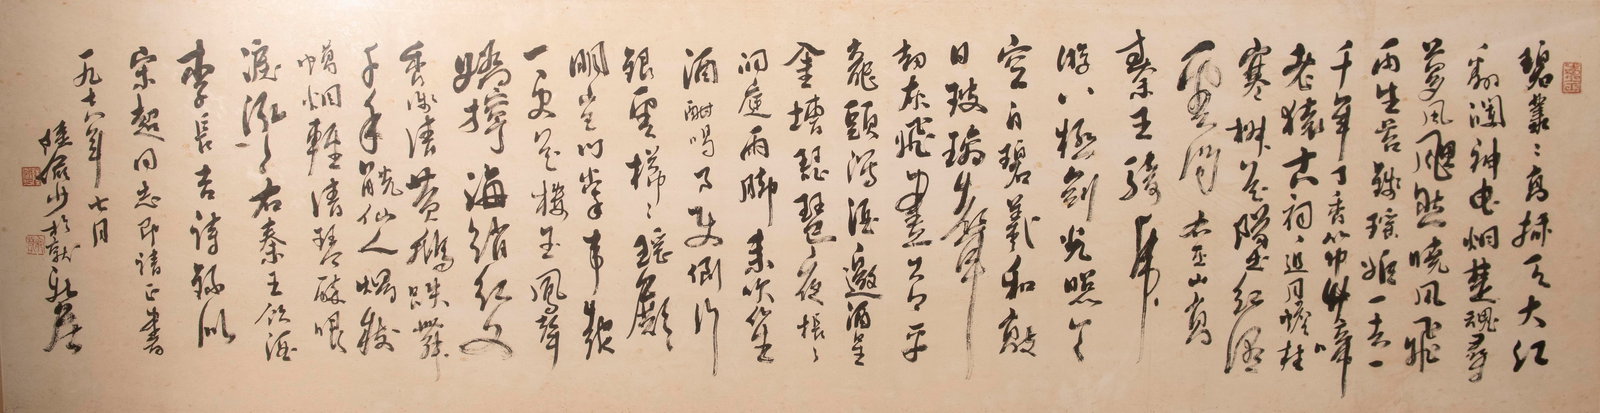 碧叢〻高插天大江
翻瀾神曳烟楚魂尋
夢風颸然曉風飛
雨生苔錢瑤姬一去一
千年丁香筇竹啼
老猿古祠近月蟾桂
寒椒花墜紅溼
雲間 右巫山高
秦王騎虎
游八極劍光照天
空自碧羲和敲
日玻璃聲
劫灰飛盡古今平
龍頭瀉酒邀酒星
金槽琵琶夜棖〻
洞庭雨脚來吹笙
酒酣喝月使倒行
銀雲櫛〻瑤殿
明宮門掌事報
一更花樓玉鳳聲
嬌獰海綃紅文
香淺清黃鵝跌舞
千年觥仙人燭樹
蠟烟輕清琴醉眼
淚泓〻右秦王飲酒
李長吉詩錄似
宋超同志即請正書
一九七八年七月
陸儼少於